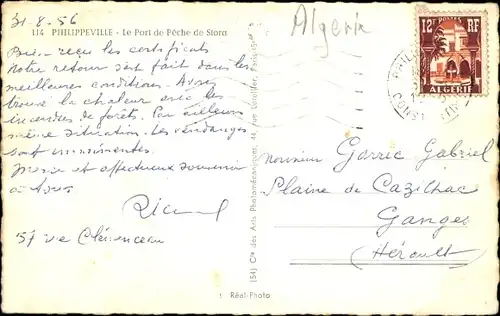 31-8-56
114 PHILIPPEVILLE - Le Port de Pêche de Stora
Bien reçu les certificats
Notre retour s'est fait dans les
meilleures conditions. Avons
trouvé la chaleur avec les
incendies de forêts. Par ailleurs
même situation. Les vendanges
sont imminentes.
Merci et affectueux souvenir
à tous
57 rue Clémenceau
Algeria
12F POSTES RF
ALGERIE
Monsieur Garric Gabriel
Plaine de Cazilhac
Ganges
Hérault
(54) Cie des Arts Photomécaniques, 44, rue Letellier, Paris-15e
Réal-Photo